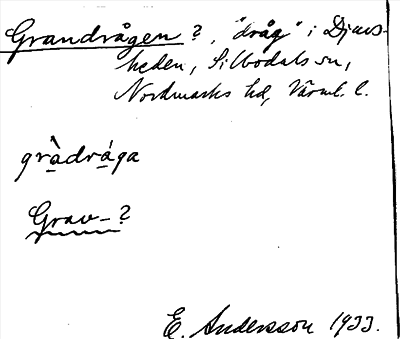 Grandrågen ?, "dråg" i Djurs-
heden, Silbodals sn,
Nordmarks hd, Värml. l.
gràdrága
Grav- ?
E. Andersson 1933.